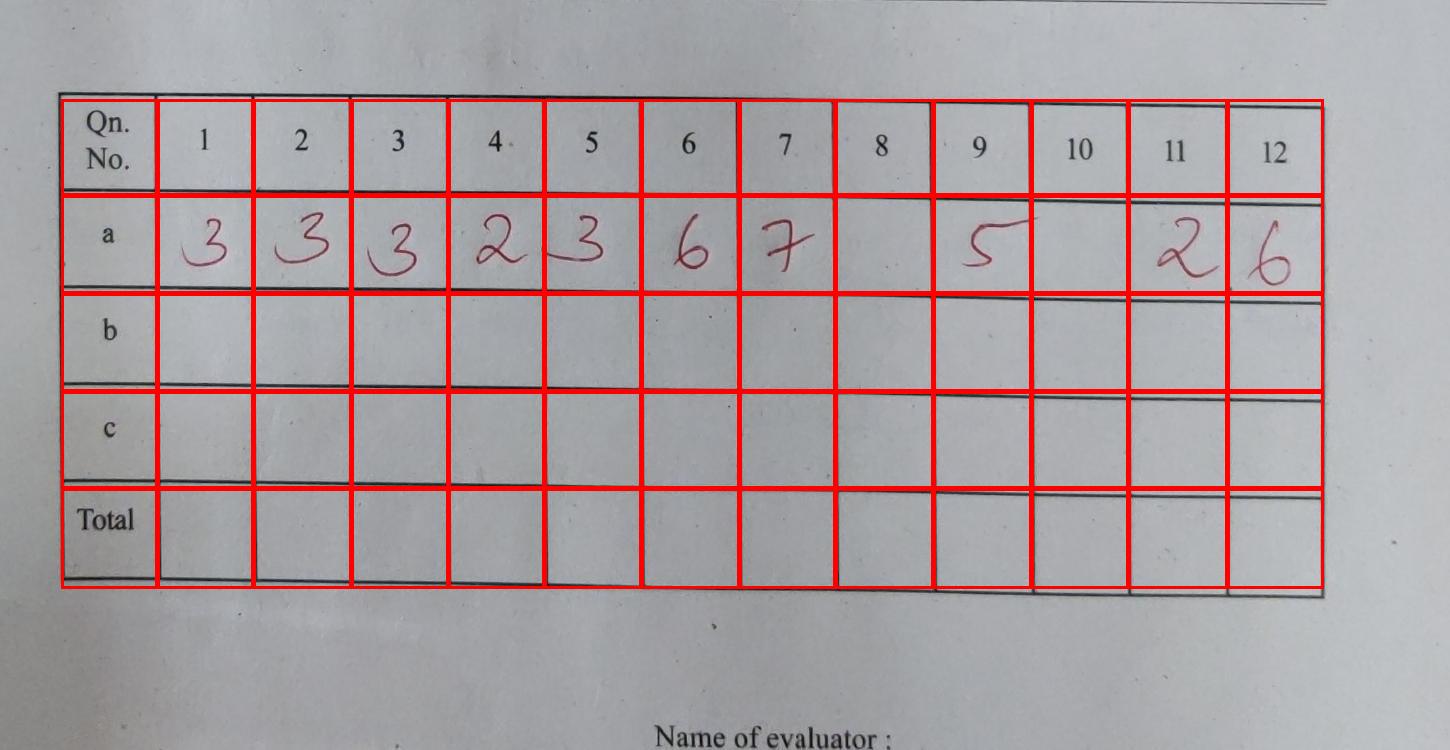 Qn. No. 1 2 3 4 5 6 7 8 9 10 11 12
a 3 3 3 2 3 6 7 5 2 6
b
c
Total
Name of evaluator :